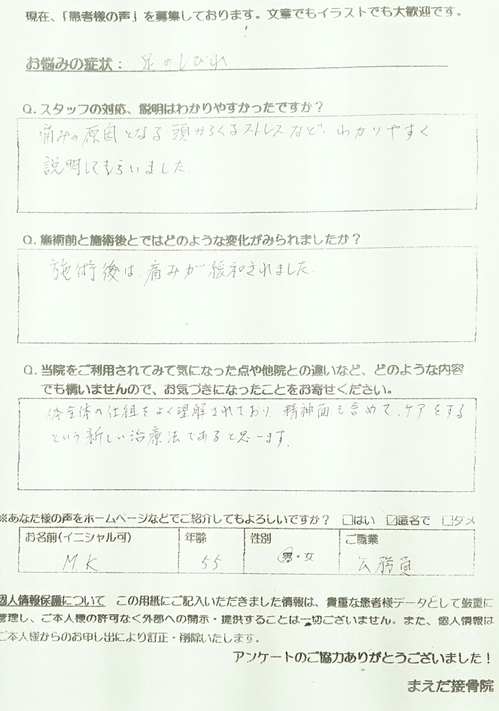 現在、「患者様の声」を募集しております。文章でもイラストでも大歓迎です。
お悩みの症状： 足のしびれ
Q. スタッフの対応、説明はわかりやすかったですか？
痛みの原因となる頭からくるストレスなど、わかりやすく
説明してもらいました。
Q. 施術前と施術後とではどのような変化がみられましたか？
施術後は、痛みが緩和されました。
Q. 当院をご利用されてみて気になった点や他院との違いなど、どのような内容
でも構いませんので、お気づきになったことをお寄せください。
体全体の仕組をよく理解されており、精神面も含めて、ケアをする
という新しい治療法であると思います。
※あなた様の声をホームページなどでご紹介してもよろしいですか？ □はい ☑匿名で □ダメ
お名前(イニシャル可) 年齢 性別 ご職業
M.K 55 男・女 公務員
個人情報保護について この用紙にご記入いただきました情報は、貴重な患者様データとして厳重に
管理し、ご本人様の許可なく外部への開示・提供することは一切ございません。また、個人情報は
ご本人様からのお申し出により訂正・削除いたします。
アンケートのご協力ありがとうございました！
まえだ接骨院